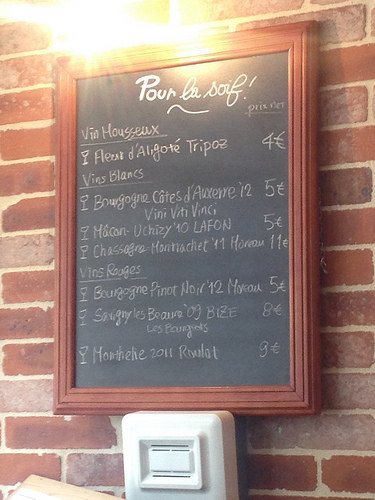 Pour la soif!
prix net
Vin Mousseux
Fleur d'Aligoté Tripoz 4€
Vins Blancs
Bourgogne Côtes d'Auxerre '12 5€
Vini Viti Vinci
Mâcon-Uchizy '10 LAFON 5€
Chassagne-Montrachet '11 Moreau 11€
Vins Rouges
Bourgogne Pinot Noir '12 Moreau 5€
Savigny les Beaune '09 BIZE 8€
Les Bourgeots
Monthelie 2011 Roulot 9€